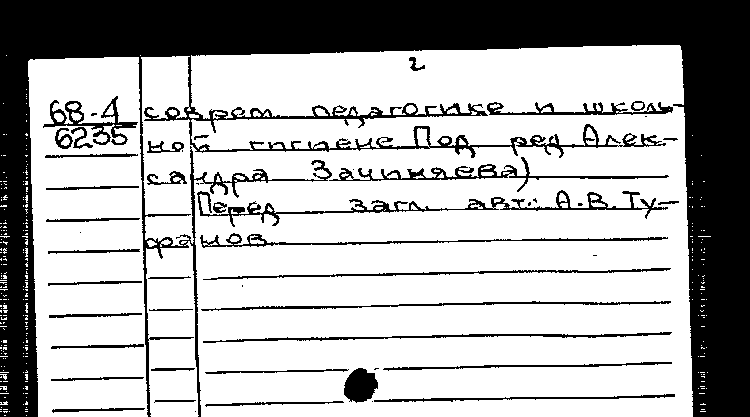 2
68-4
6235
соврем. педагогике и школь-
ной гигиене Под ред. Алек-
сандра Зачиняева).
Перед загл. авт.: А.В. Ту-
фанов.